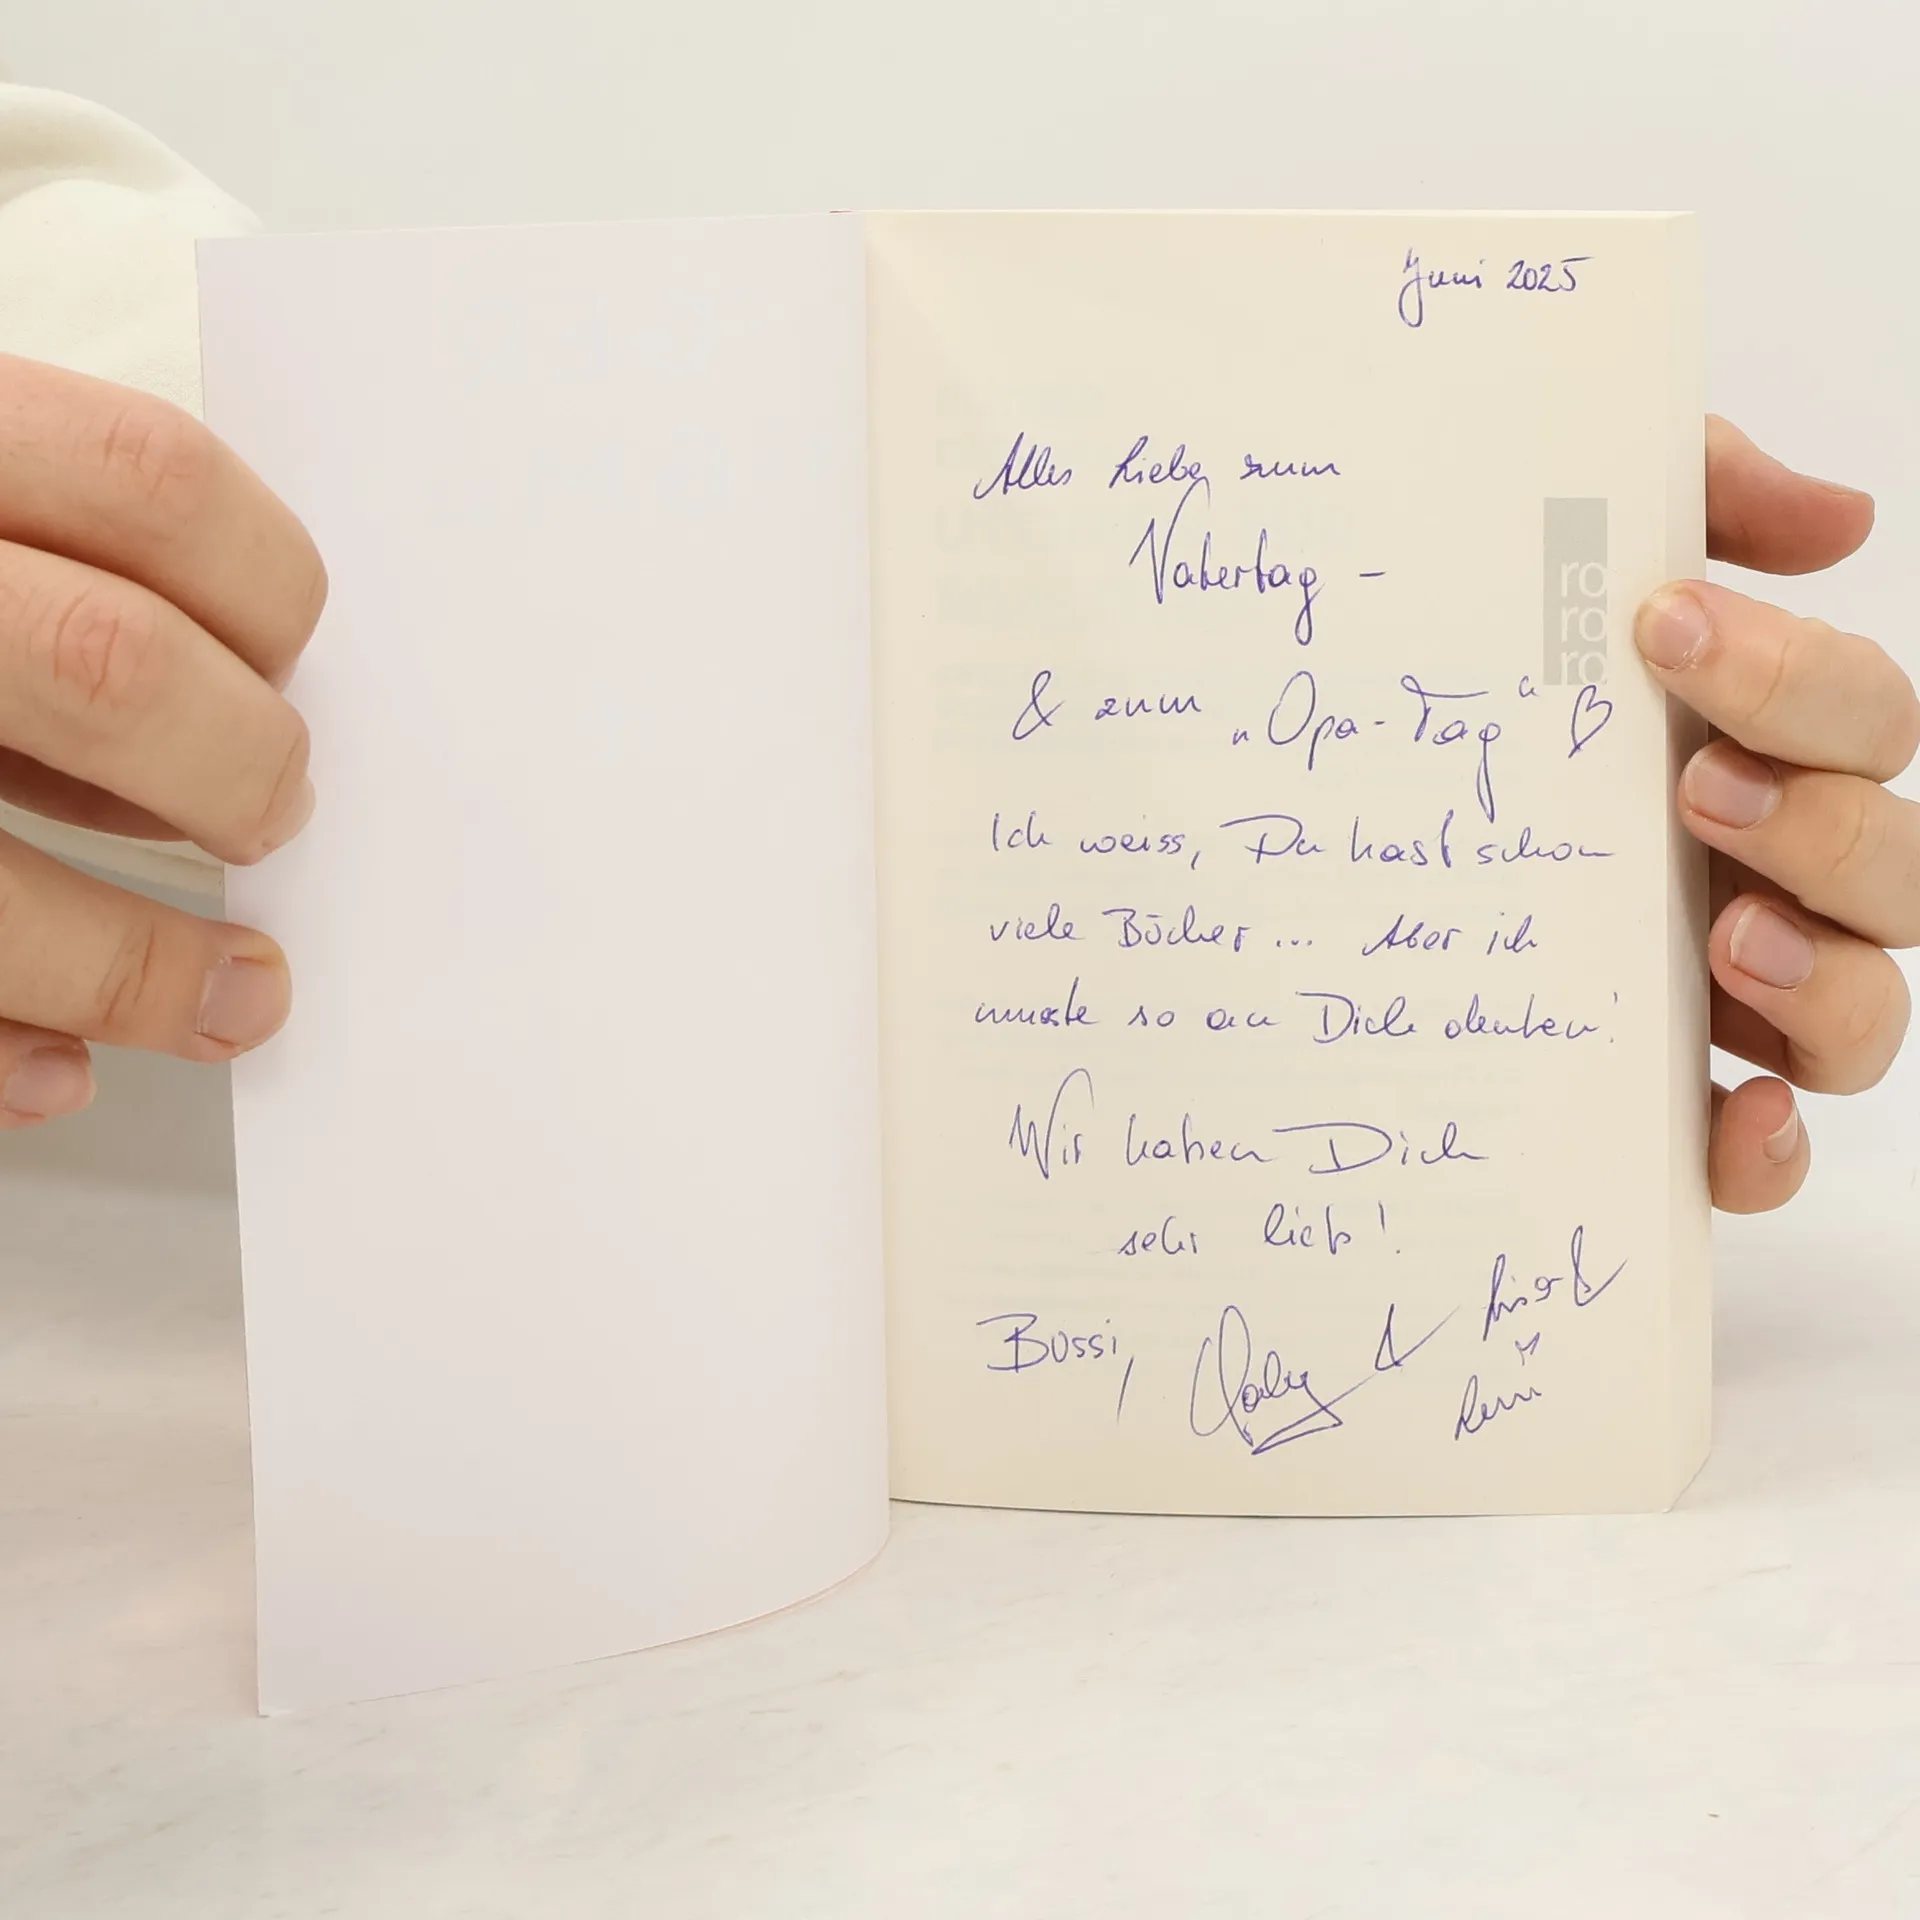 Juni 2025
Alles Liebe zum
Vatertag -
& zum „Opa-Tag“ ♡
ro
ro
ro
Ich weiss, Du hast schon
viele Bücher ... Aber ich
musste so an Dich denken!
Wir haben Dich
sehr lieb!
Bussi, Gaby &